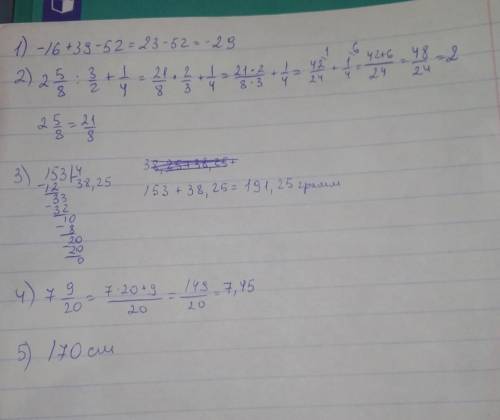 1) -16+39-52=23-52=-29
2) 2 5/8 : 3/2 + 1/4 = 21/8 * 2/3 + 1/4 = 21*2/8*3 + 1/4 = 42/24 ¹ + 1/4 ⁶ = 42+6/24 = 48/24 = 2
2 5/8 = 21/8
3) 153 | 4
38,25
-12
33
-32
10
-8
20
-20
0
153 + 38,25 = 191,25 грамм
4) 7 9/20 = 7·20+9/20 = 149/20 = 7,45
5) 170 см